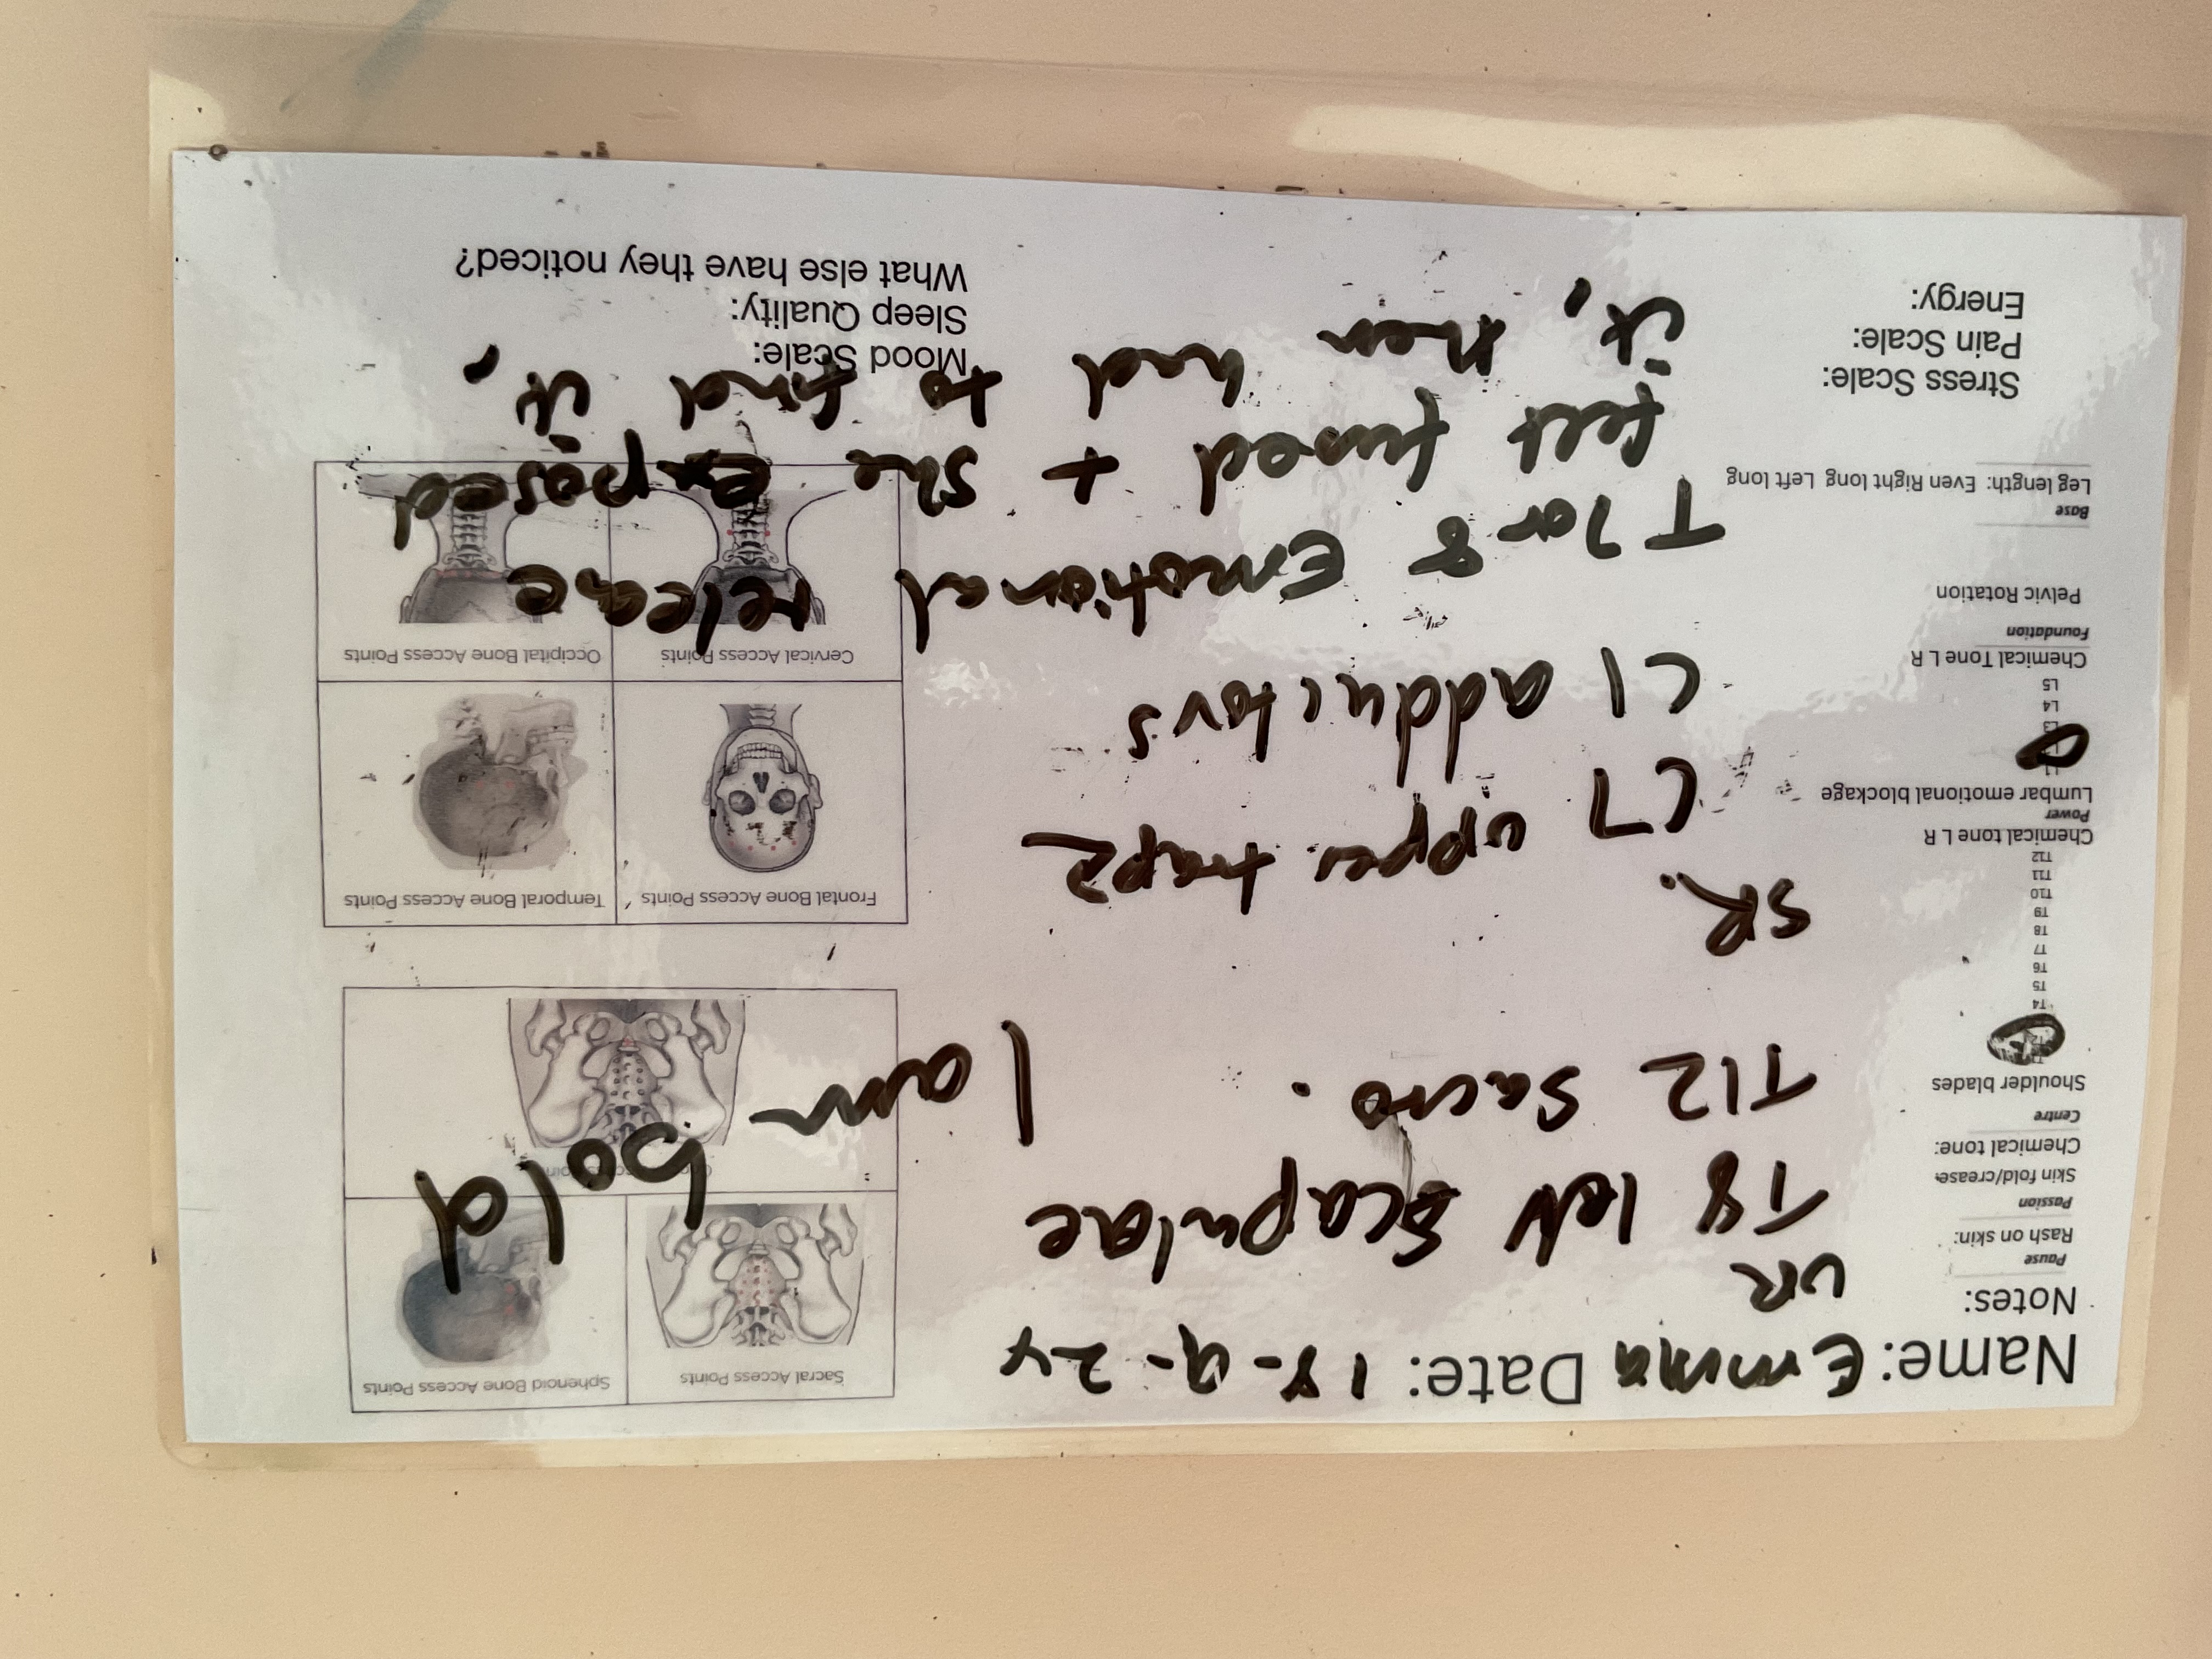 Name: Emma Date: 18-9-24
Notes:
UR
Pause
Rash on skin:
T8 left Scapulae
Passion
Skin fold/crease
Chemical tone:
T12 Sacro.
I am bold
Centre
Shoulder blades
T4
T5
T6
T7
T8
T9
T10
T11
T12
SR.
Chemical tone L R
Power
Lumbar emotional blockage
C7 upper trapz
L3
L4
L5
C1 adductors
Chemical Tone L R
Foundation
Pelvic Rotation
T7 or 8 Emotional release
Base
Leg length: Even Right long Left long
felt fused + she exposed
it, then had to find it,
Stress Scale:
Pain Scale:
Energy:
Sacral Access Points
Sphenoid Bone Access Points
Frontal Bone Access Points
Temporal Bone Access Points
Cervical Access Points
Occipital Bone Access Points
Mood Scale:
Sleep Quality:
What else have they noticed?